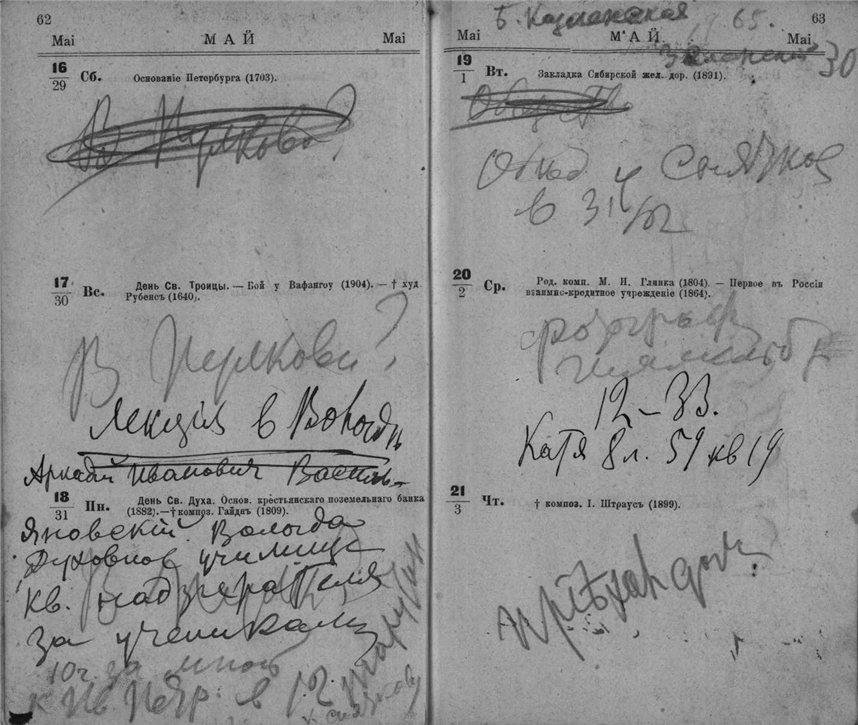 62
Mai МАЙ Mai
16
29
Сб.
Основаніе Петербурга (1703).
В Пулково?
17
30
Вс.
День Св. Троицы. — Бой у Вафангоу (1904). — † худ
Рубенсъ (1640).
В Пулкови?
Лекція в Вологдѣ
Аркадій Иванович Василь-
18
31
Пн.
День Св. Духа. Основ. крестьянскаго поземельнаго банка
(1882).—† композ. Гайднъ (1809).
яновскій. Вологда
Духовное училище
кв. надзирателя
за учениками
10 ч. за мною
в 12
63
Б. Казанская 65.
Mai МАЙ Mai
30
19
1
Вт.
Закладка Сибирской жел. дор. (1891).
Обѣд у
в
20
2
Ср.
Род. комп. М. И. Глинка (1804). — Первое въ Россіи
взаимно-кредитное учрежденіе (1864).
12–33.
Катя 8 л. 59 кв 19
21
3
Чт.
† композ. І. Штраусъ (1899).